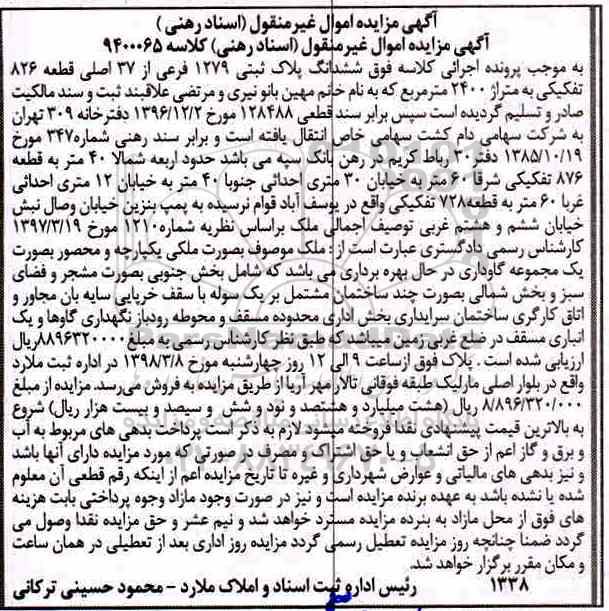 آگهی مزایده اموال غیرمنقول (اسناد رهنی)
آگهی مزایده اموال غیرمنقول (اسناد رهنی) کلاسه ۹۴۰۰۰۶۵
به موجب پرونده اجرائی کلاسه فوق ششدانگ پلاک ثبتی ۱۲۷۹ فرعی از ۳۷ اصلی قطعه ۸۲۶
تفکیکی به متراژ ۲۴۰۰ مترمربع که به نام خانم مهین بانو نیری و مرتضی علاقبند ثبت و سند مالکیت
صادر و تسلیم گردیده است سپس برابر سند قطعی ۱۲۸۴۸۸ مورخ ۱۳۹۶/۱۲/۲ دفترخانه ۳۰۹ تهران
به شرکت سهامی دام کشت سهامی خاص انتقال یافته است و برابر سند رهنی شماره۳۴۷ مورخ
۱۳۸۵/۱۰/۱۹ دفتر۳۰ رباط کریم در رهن بانک سپه می باشد حدود اربعه شمالا ۴۰ متر به قطعه
۸۷۶ تفکیکی شرقا ۶۰ متر به خیابان ۳۰ متری احداثی جنوبا ۴۰ متر به خیابان ۱۲ متری احداثی
غربا ۶۰ متر به قطعه۷۲۸ تفکیکی واقع در یوسف آباد قوام نرسیده به پمپ بنزین خیابان وصال نبش
خیابان ششم و هشتم غربی توصیف اجمالی ملک براساس نظریه شماره۱۲۱۰ مورخ ۱۳۹۷/۳/۱۹
کارشناس رسمی دادگستری عبارت است از : ملک موصوف بصورت ملکی یکپارچه و محصور بصورت
یک مجموعه گاوداری در حال بهره برداری می باشد که شامل بخش جنوبی بصورت مشجر و فضای
سبز و بخش شمالی بصورت چند ساختمان مشتمل بر یک سوله با سقف خرپایی سایه بان مجاور و
اتاق کارگری ساختمان سرایداری بخش اداری محدوده مسقف و محوطه روباز نگهداری گاوها و یک
انباری مسقف در ضلع غربی زمین میباشد که طبق نظر کارشناس رسمی به مبلغ ۸۸۹۶۳۲۰۰۰۰ریال
ارزیابی شده است . پلاک فوق ازساعت ۹ الی ۱۲ روز چهارشنبه مورخ ۱۳۹۸/۳/۸ در اداره ثبت ملارد
واقع در بلوار اصلی مارلیک طبقه فوقانی تالار مهر آریا از طریق مزایده به فروش می‌رسد. مزایده از مبلغ
۸/۸۹۶/۳۲۰/۰۰۰ ریال (هشت میلیارد و هشتصد و نود و شش و سیصد و بیست هزار ریال) شروع
به بالاترین قیمت پیشنهادی نقدا فروخته میشود لازم به ذکر است پرداخت بدهی های مربوط به آب
و برق و گاز اعم از حق انشعاب و یا حق اشتراک و مصرف در صورتی که مورد مزایده دارای آنها باشد
و نیز بدهی های مالیاتی و عوارض شهرداری و غیره تا تاریخ مزایده اعم از اینکه رقم قطعی آن معلوم
شده یا نشده باشد به عهده برنده مزایده است و نیز در صورت وجود مازاد وجوه پرداختی بابت هزینه
های فوق از محل مازاد به بنرده مزایده مسترد خواهد شد و نیم عشر و حق مزایده نقدا وصول می
گردد ضمنا چنانچه روز مزایده تعطیل رسمی گردد مزایده روز اداری بعد از تعطیلی در همان ساعت
و مکان مقرر برگزار خواهد شد.
۱۳۳۸ رئیس اداره ثبت اسناد و املاک ملارد - محمود حسینی ترکانی